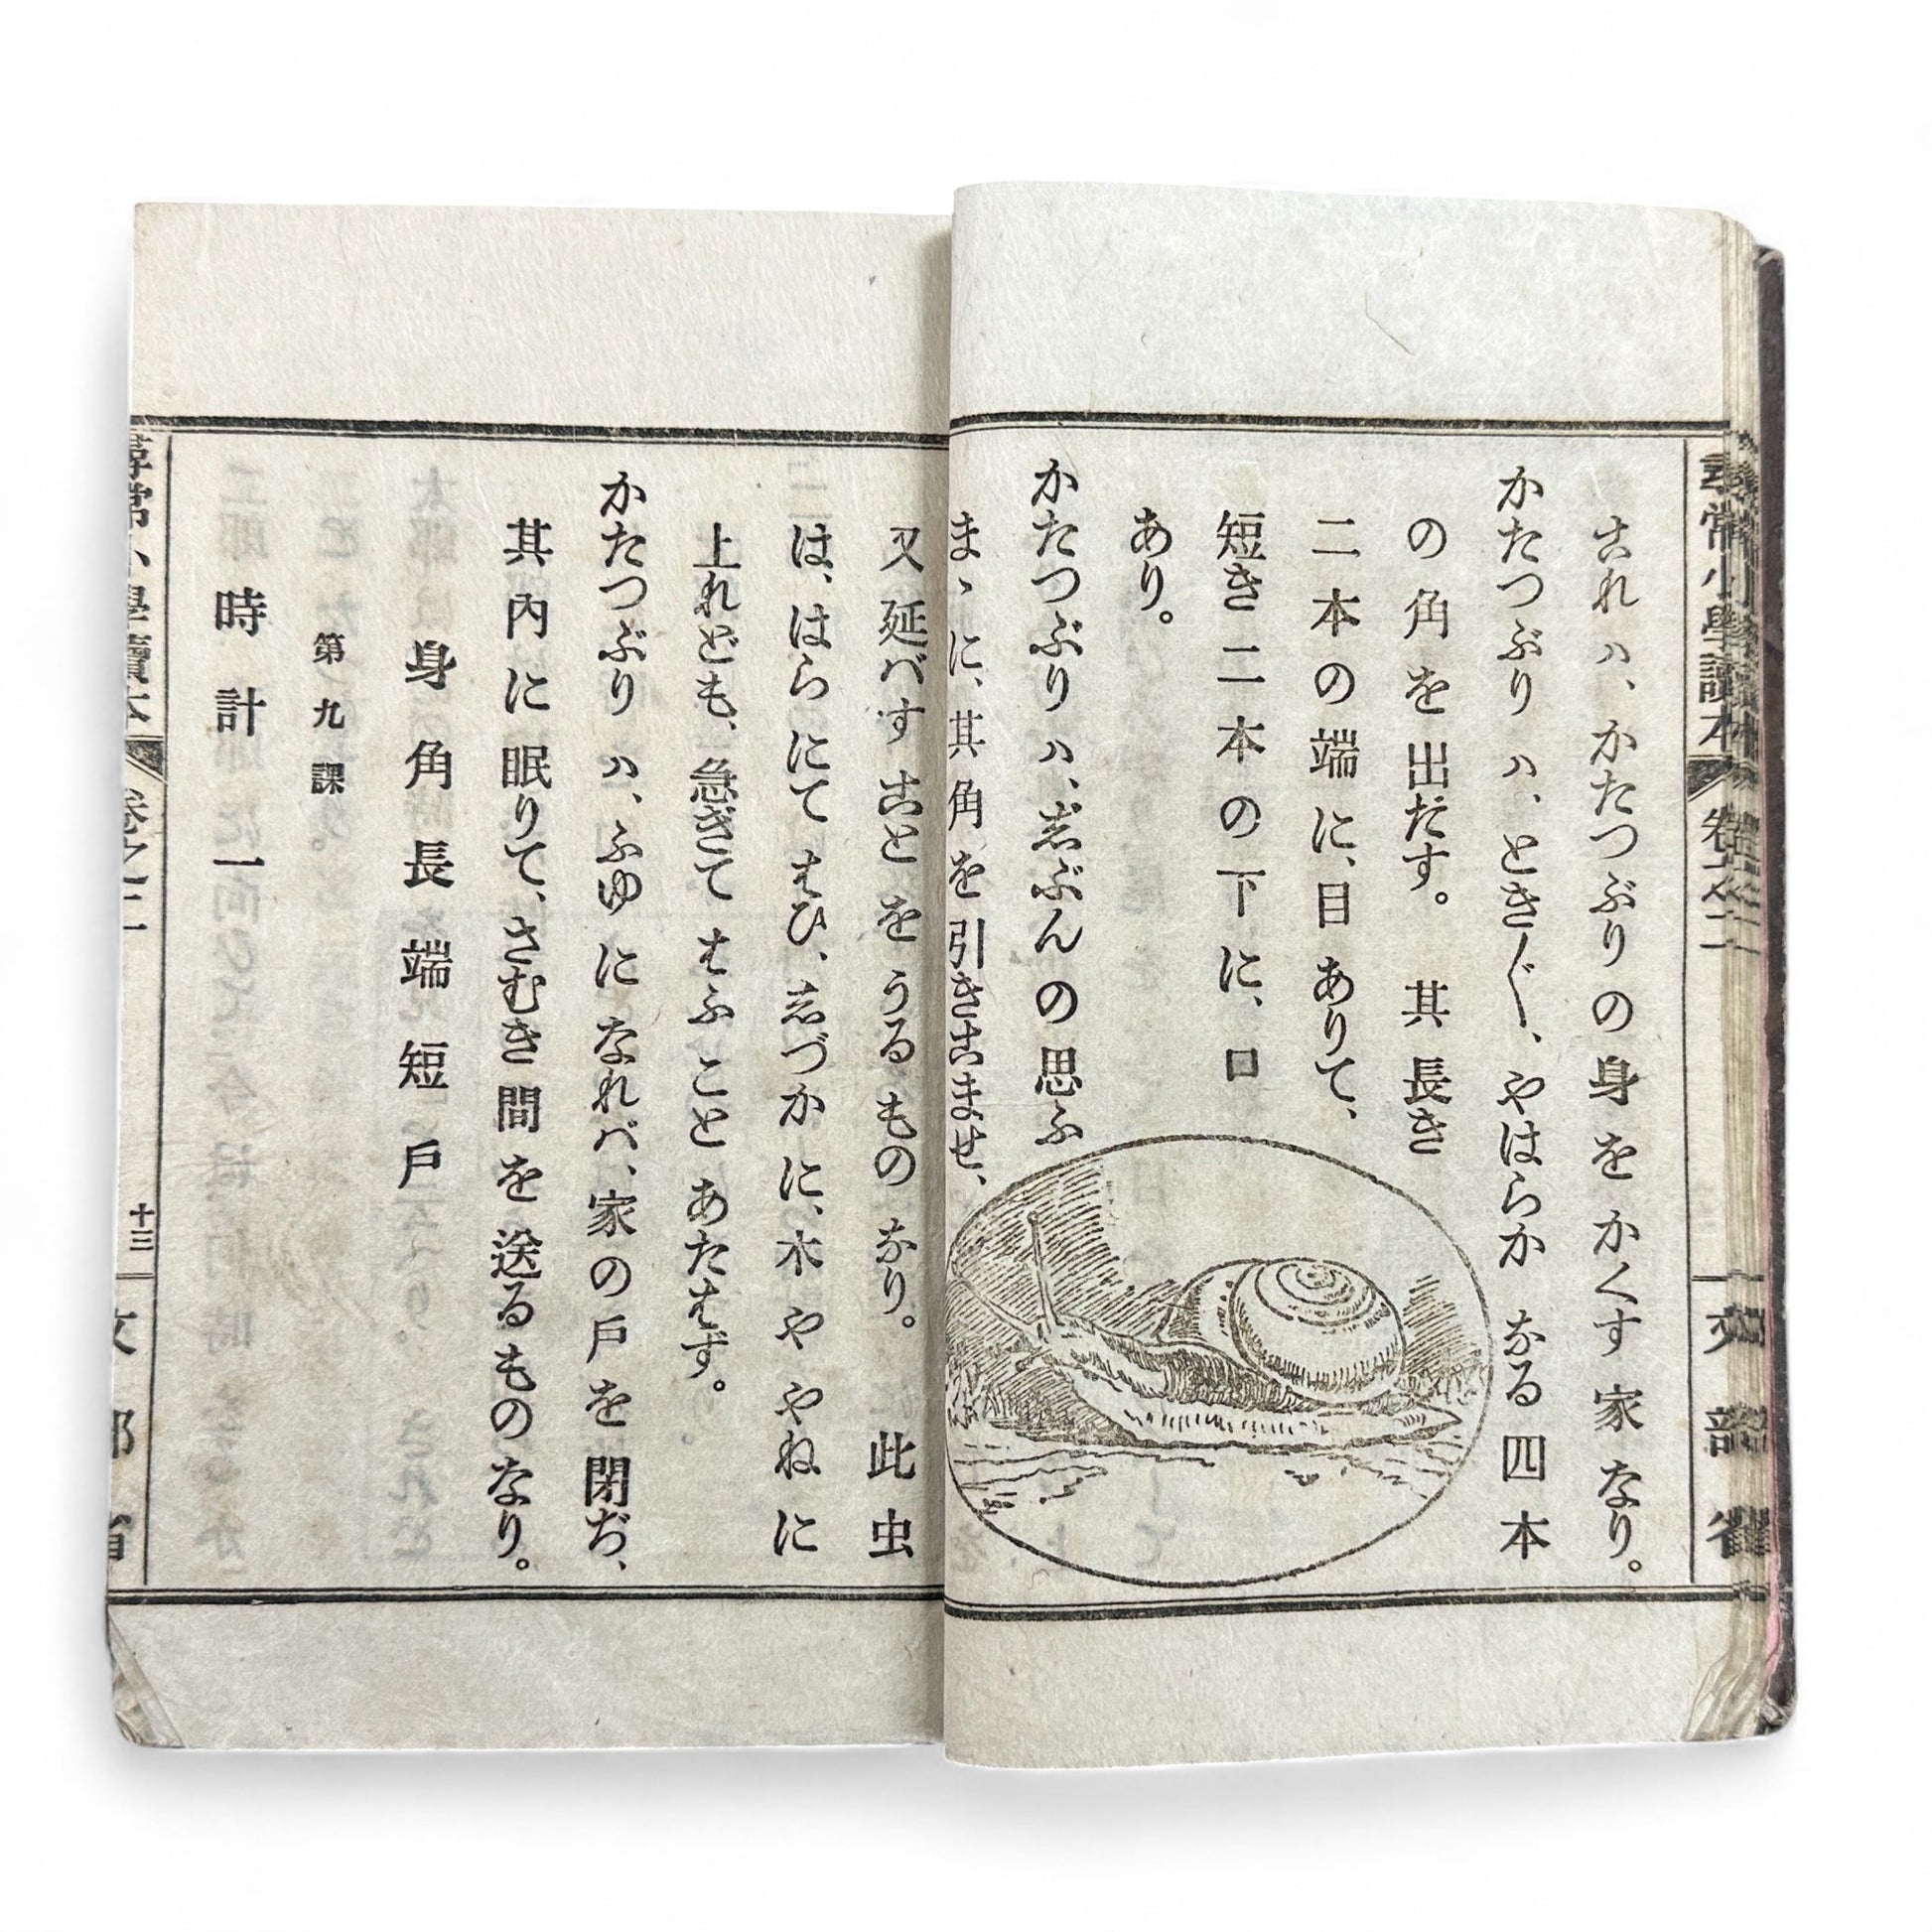 尋常小學讀本 卷之二 文部省
古れハ、かたつぶりの身をかくす家なり。
かたつぶりハ、とき〴〵、やはらかなる四本
の角を出だす。其長き
二本の端に、目ありて、
短き二本の下に、口
あり。
かたつぶりハ、志ぶんの思ふ
まゝに、其角を引き古ませ、
又延バす古とをうるものなり。此虫
は、はらにてはひ、志づかに、木ややねに
上れども、急ぎてはふことあたはず。
かたつぶりハ、ふゆになれバ、家の戸を閉ぢ、
其內に眠りて、さむき間を送るものなり。
身角長端短戸
第九課
時計一
尋常小學讀本 卷之二 十三 文部省